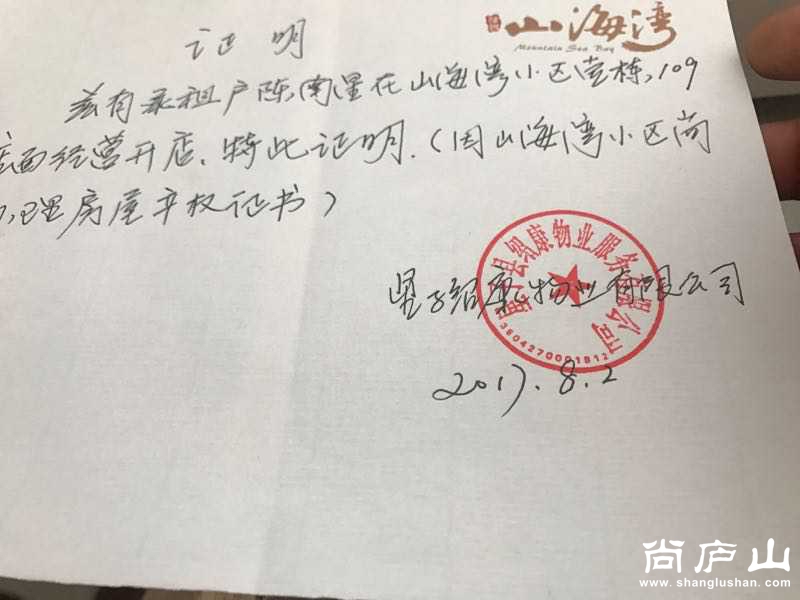 山海湾
Mountain Sea Bay
证明
兹有承租户陈南星在山海湾小区壹栋,109
店面经营开店、特此证明.(因山海湾小区尚
理房屋产权证书)
星子绍康物业有限公司
康物业服务有限公司
2017.8.2
尚庐山
www.shanglushan.com